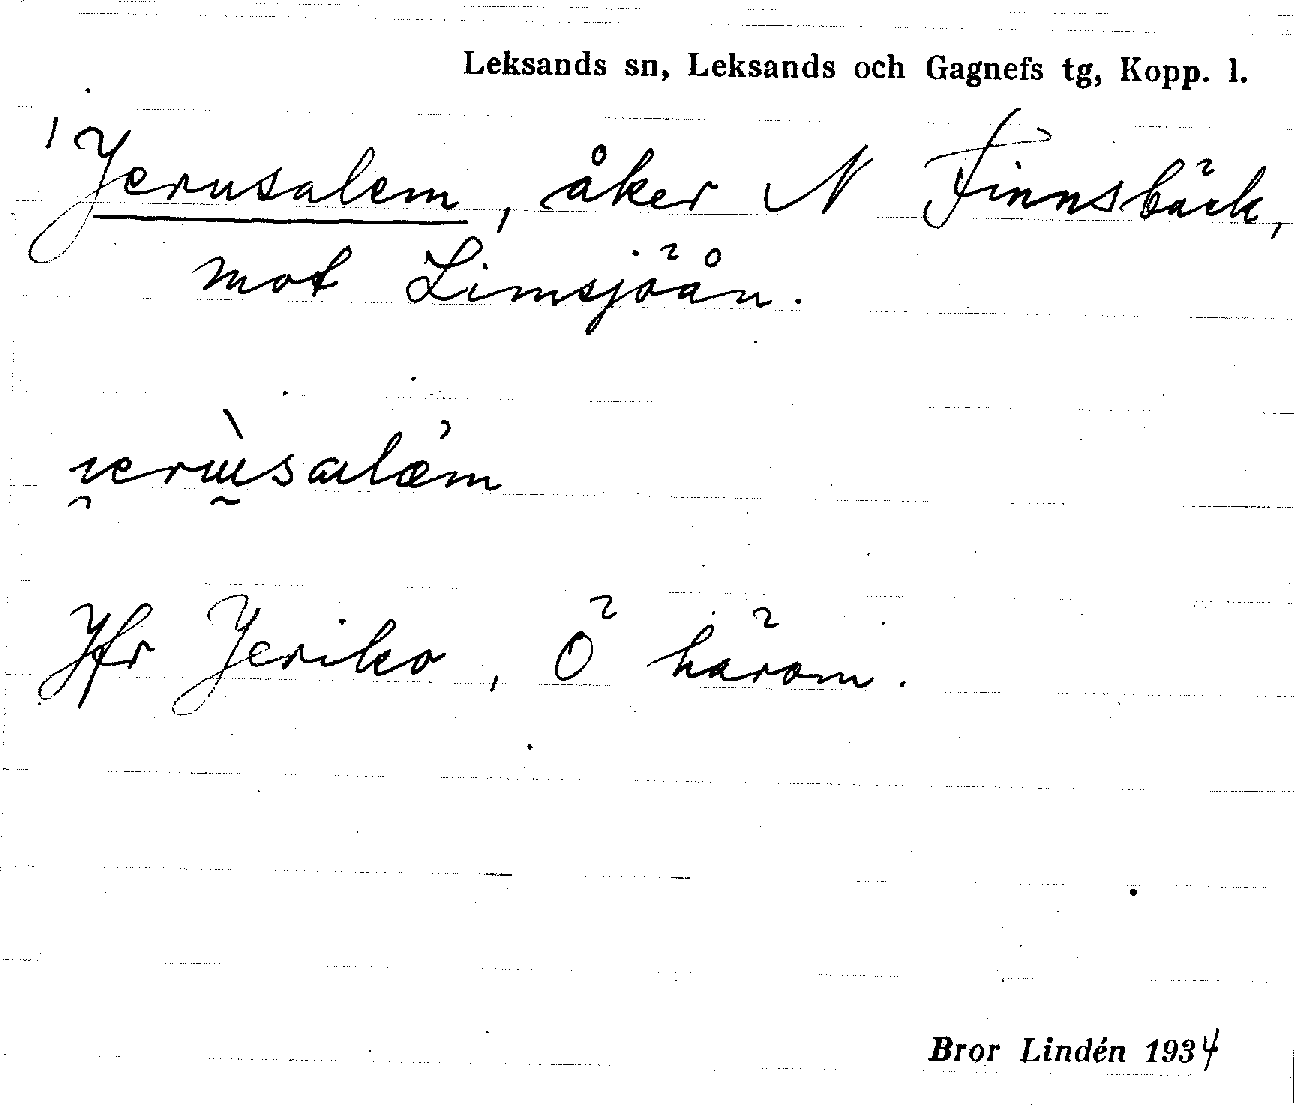 Leksands sn, Leksands och Gagnefs tg, Kopp. l.
Jerusalem, åker N Finnsbäck,
mot Limsjöån.
Jfr Jeriko, Ö härom.
Bror Lindén 1934